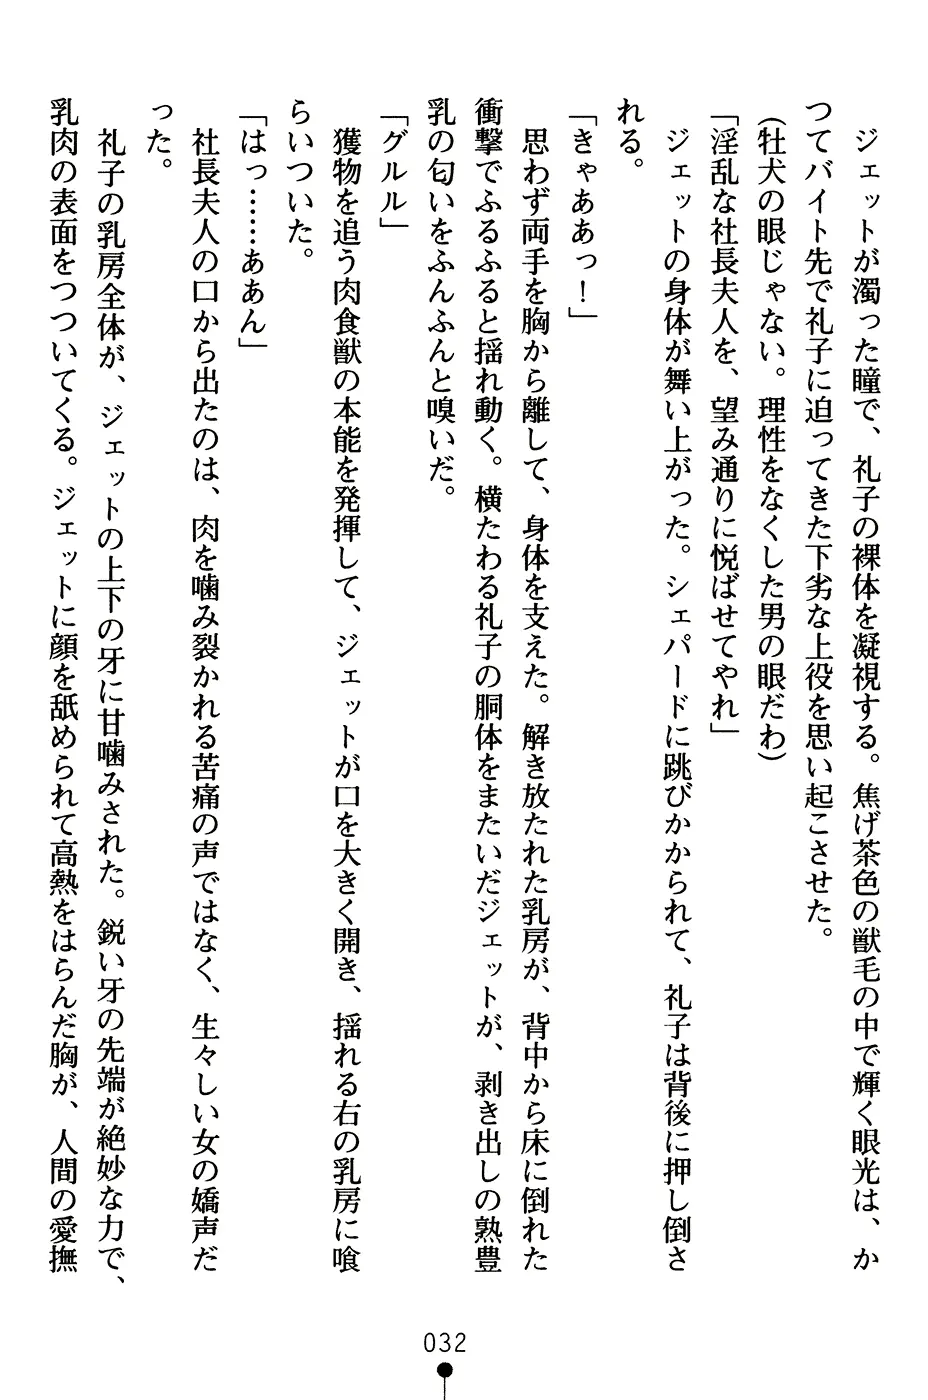 ジェットが濁った瞳で、礼子の裸体を凝視する。焦げ茶色の獣毛の中で輝く眼光は、か
つてバイト先で礼子に迫ってきた下劣な上役を思い起こさせた。
（牡犬の眼じゃない。理性をなくした男の眼だわ）
「淫乱な社長夫人を、望み通りに悦ばせてやれ」
ジェットの身体が舞い上がった。シェパードに跳びかかられて、礼子は背後に押し倒さ
れる。
「きゃああっ！」
思わず両手を胸から離して、身体を支えた。解き放たれた乳房が、背中から床に倒れた
衝撃でふるふると揺れ動く。横たわる礼子の胴体をまたいだジェットが、剥き出しの熟豊
乳の匂いをふんふんと嗅いだ。
「グルル」
獲物を追う肉食獣の本能を発揮して、ジェットが口を大きく開き、揺れる右の乳房に喰
らいついた。
「はっ……ああん」
社長夫人の口から出たのは、肉を噛み裂かれる苦痛の声ではなく、生々しい女の嬌声だ
った。
礼子の乳房全体が、ジェットの上下の牙に甘噛みされた。鋭い牙の先端が絶妙な力で、
乳肉の表面をつついてくる。ジェットに顔を舐められて高熱をはらんだ胸が、人間の愛撫
032